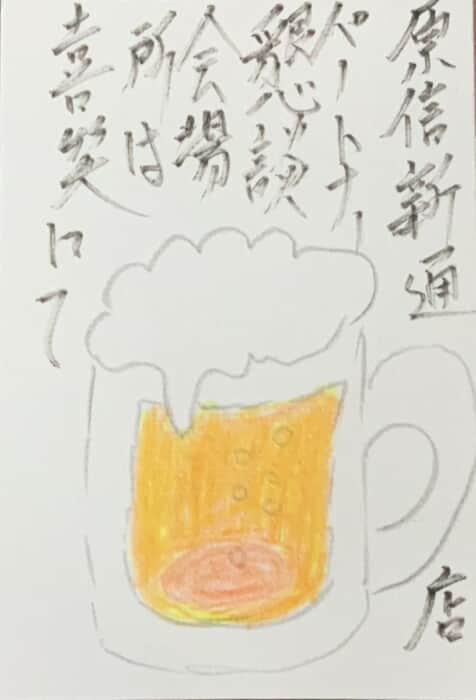 原信新通店
パートナー
懇談
会場
所は
喜笑にて